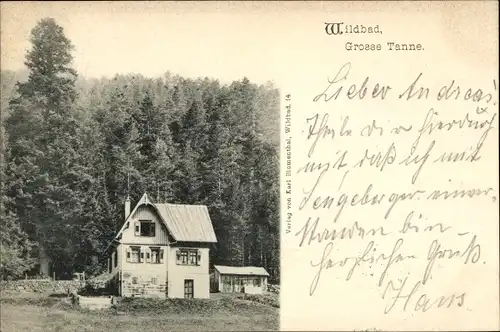 Wildbad,
Grosse Tanne.
Verlag von Karl Blumenthal, Wildbad. 14
Lieber Andreas!
Theile dir hierdurch
mit, daß ich mit
Sengeberger einver-
standen bin –
herzlichen Gruß.
Hans